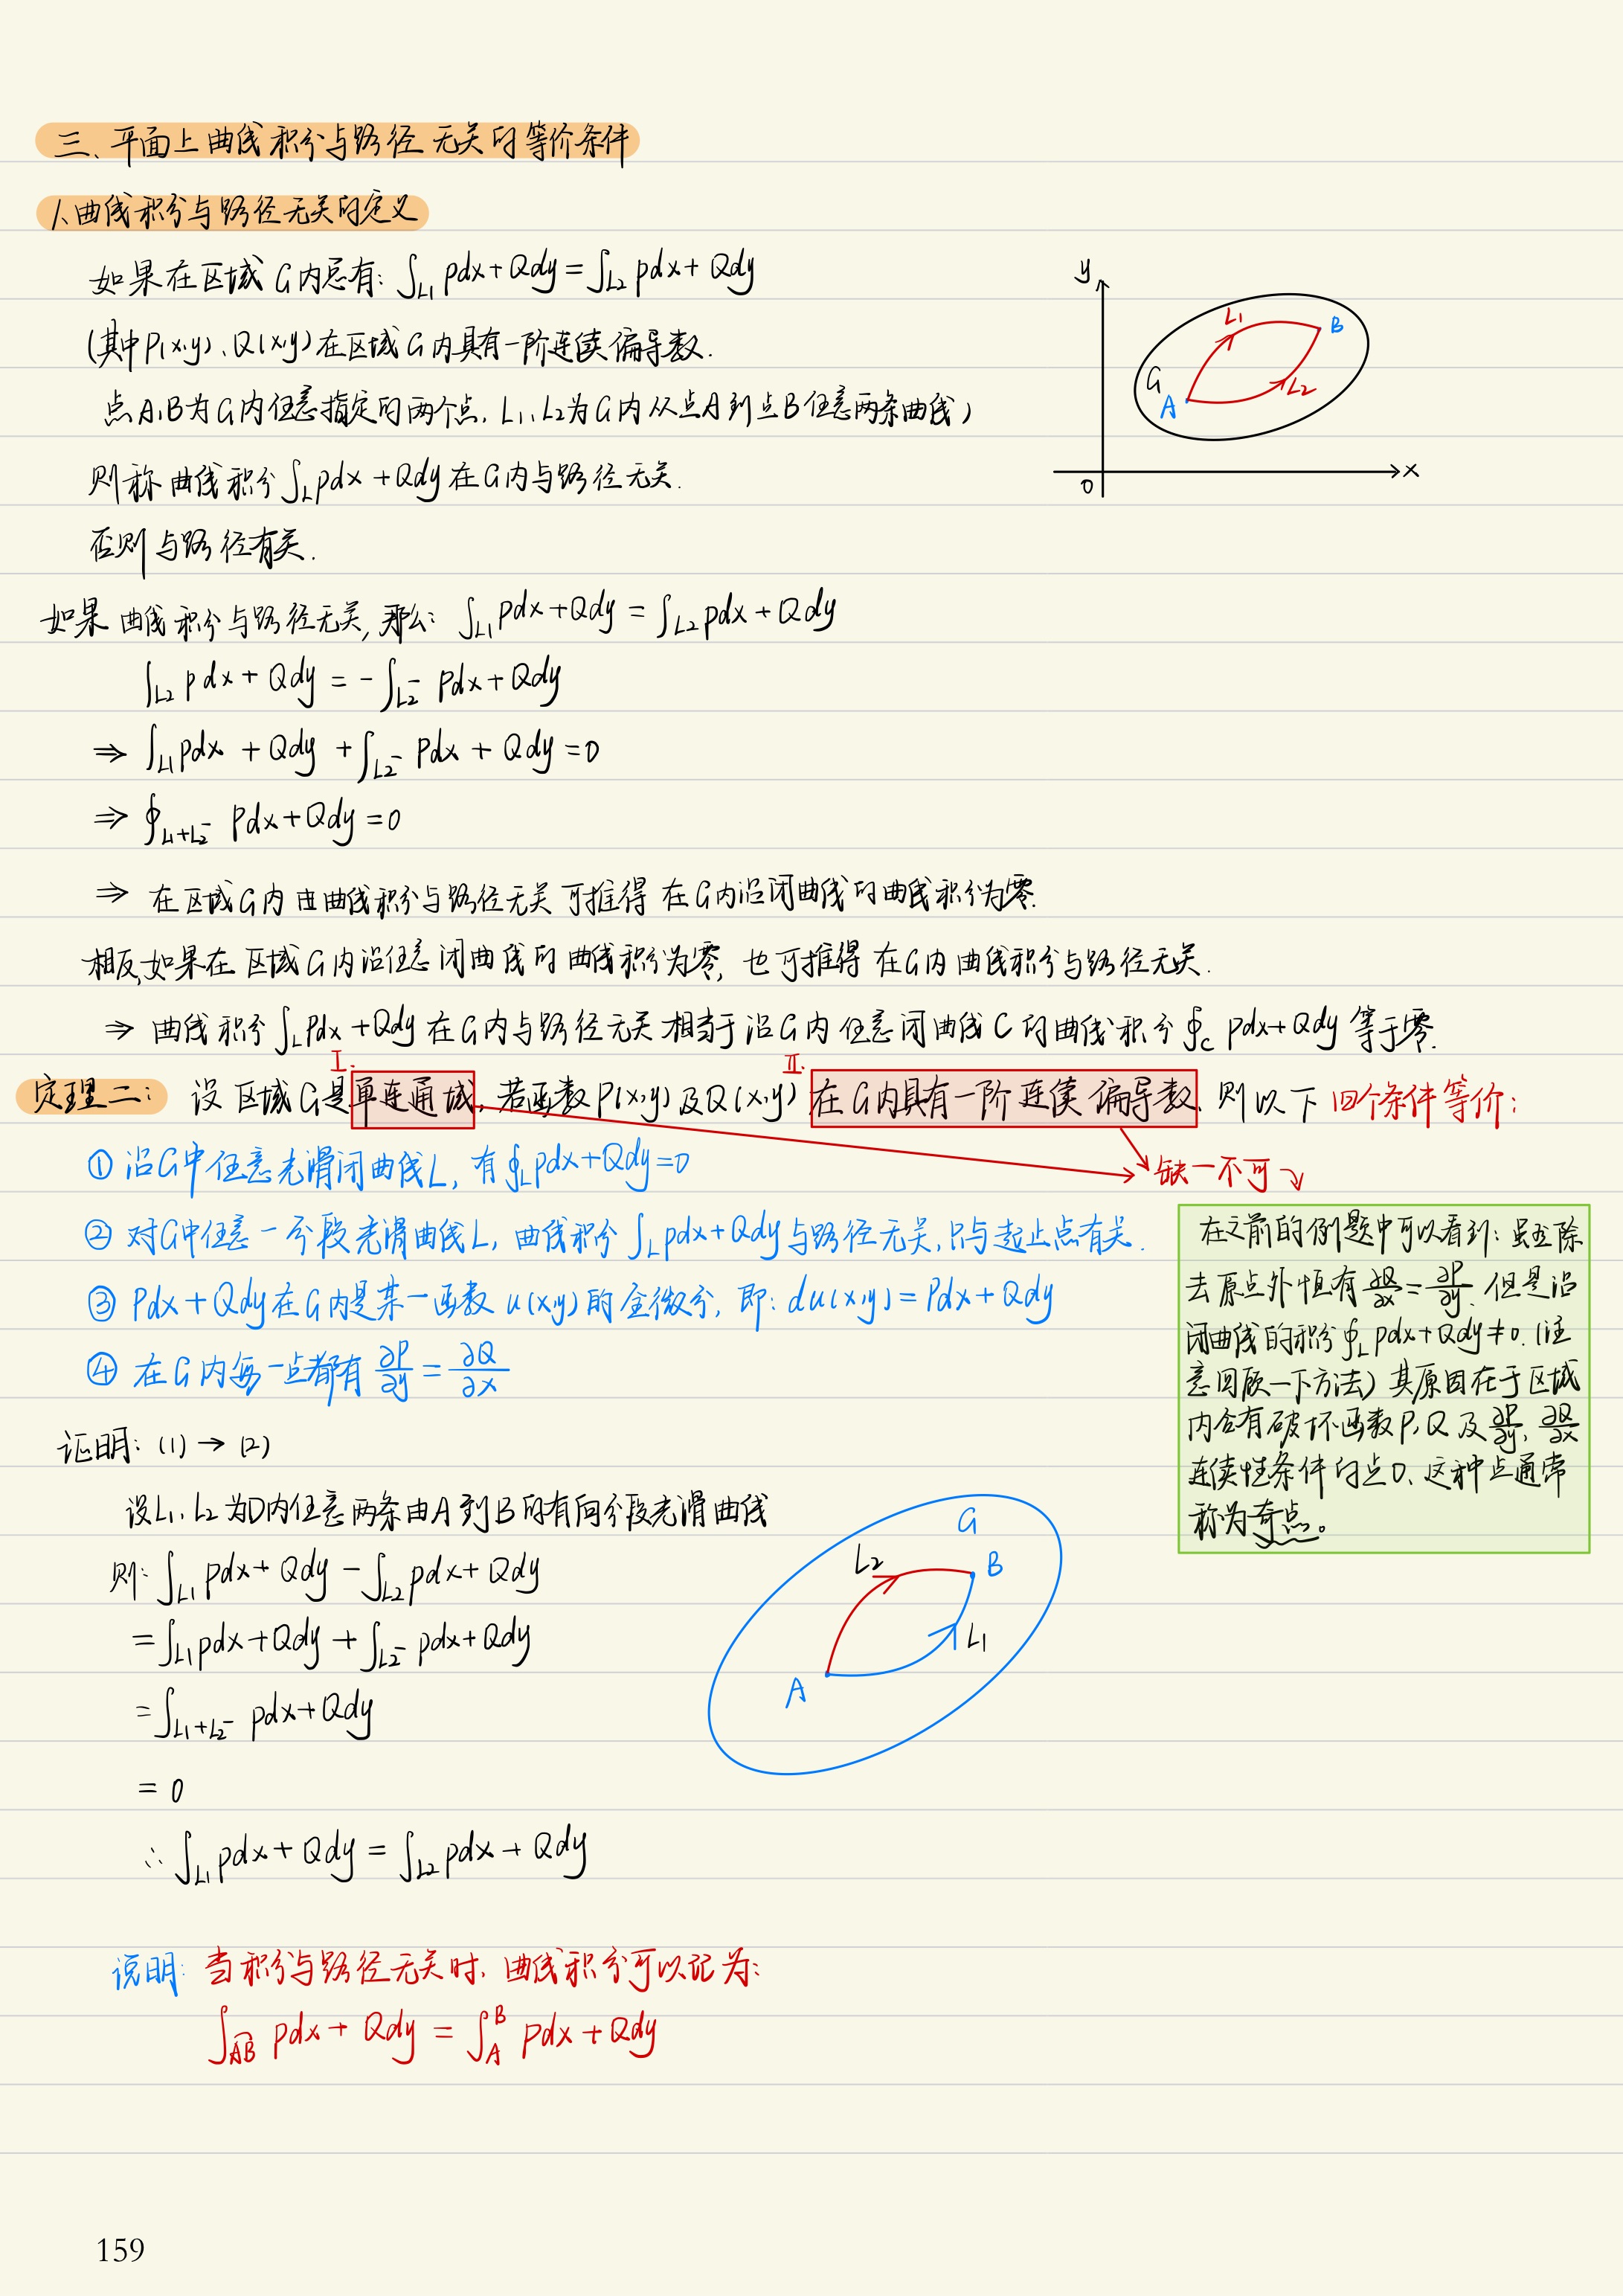 三、平面上曲线积分与路径无关的等价条件
1、曲线积分与路径无关的定义
如果在区域G内总有: ∫_{L1} Pdx+Qdy=∫_{L2} Pdx+Qdy
(其中P(x,y)、Q(x,y)在区域G内具有一阶连续偏导数.
点A,B为G内任意指定的两个点, L1、L2为G内从点A到点B任意两条曲线)
则称曲线积分∫_L Pdx+Qdy在G内与路径无关.
否则与路径有关.
y
L1
B
G
L2
A
0
x
如果曲线积分与路径无关, 那么: ∫_{L1} Pdx+Qdy = ∫_{L2} Pdx+Qdy
∫_{L2} Pdx+Qdy = -∫_{L2⁻} Pdx+Qdy
⇒ ∫_{L1} Pdx+Qdy+∫_{L2⁻} Pdx+Qdy=0
⇒ ∮_{L1+L2⁻} Pdx+Qdy=0
⇒ 在区域G内由曲线积分与路径无关可推得在G内沿闭曲线的曲线积分为零.
相反,如果在区域G内沿任意闭曲线的曲线积分为零, 也可推得在G内曲线积分与路径无关.
⇒ 曲线积分∫_L Pdx+Qdy在G内与路径无关相当于沿G内任意闭曲线C的曲线积分∮_C Pdx+Qdy等于零.
I.
II.
定理二: 设区域G是单连通域, 若函数P(x,y)及Q(x,y)在G内具有一阶连续偏导数, 则以下四个条件等价:
① 沿G中任意光滑闭曲线L, 有∮_L Pdx+Qdy=0
缺一不可
② 对G中任意一分段光滑曲线L, 曲线积分∫_L Pdx+Qdy与路径无关, 只与起止点有关.
③ Pdx+Qdy在G内是某一函数u(x,y)的全微分, 即: du(x,y)=Pdx+Qdy
④ 在G内每一点都有 ∂P/∂y = ∂Q/∂x
在之前的例题中可以看到: 虽然除
去原点外恒有∂Q/∂x=∂P/∂y, 但是沿
闭曲线的积分∮_L Pdx+Qdy≠0. (注
意回顾一下方法) 其原因在于区域
内含有破坏函数P,Q及∂P/∂y, ∂Q/∂x
连续性条件的点O, 这种点通常
称为奇点。
证明: (1) → (2)
设L1、L2为D内任意两条由A到B的有向分段光滑曲线
则: ∫_{L1} Pdx+Qdy-∫_{L2} Pdx+Qdy
=∫_{L1} Pdx+Qdy+∫_{L2⁻} Pdx+Qdy
=∫_{L1+L2⁻} Pdx+Qdy
= 0
∴ ∫_{L1} Pdx+Qdy = ∫_{L2} Pdx+Qdy
G
L2
B
L1
A
说明: 当积分与路径无关时, 曲线积分可以记为:
∫_{AB} Pdx+Qdy = ∫_A^B Pdx+Qdy
159